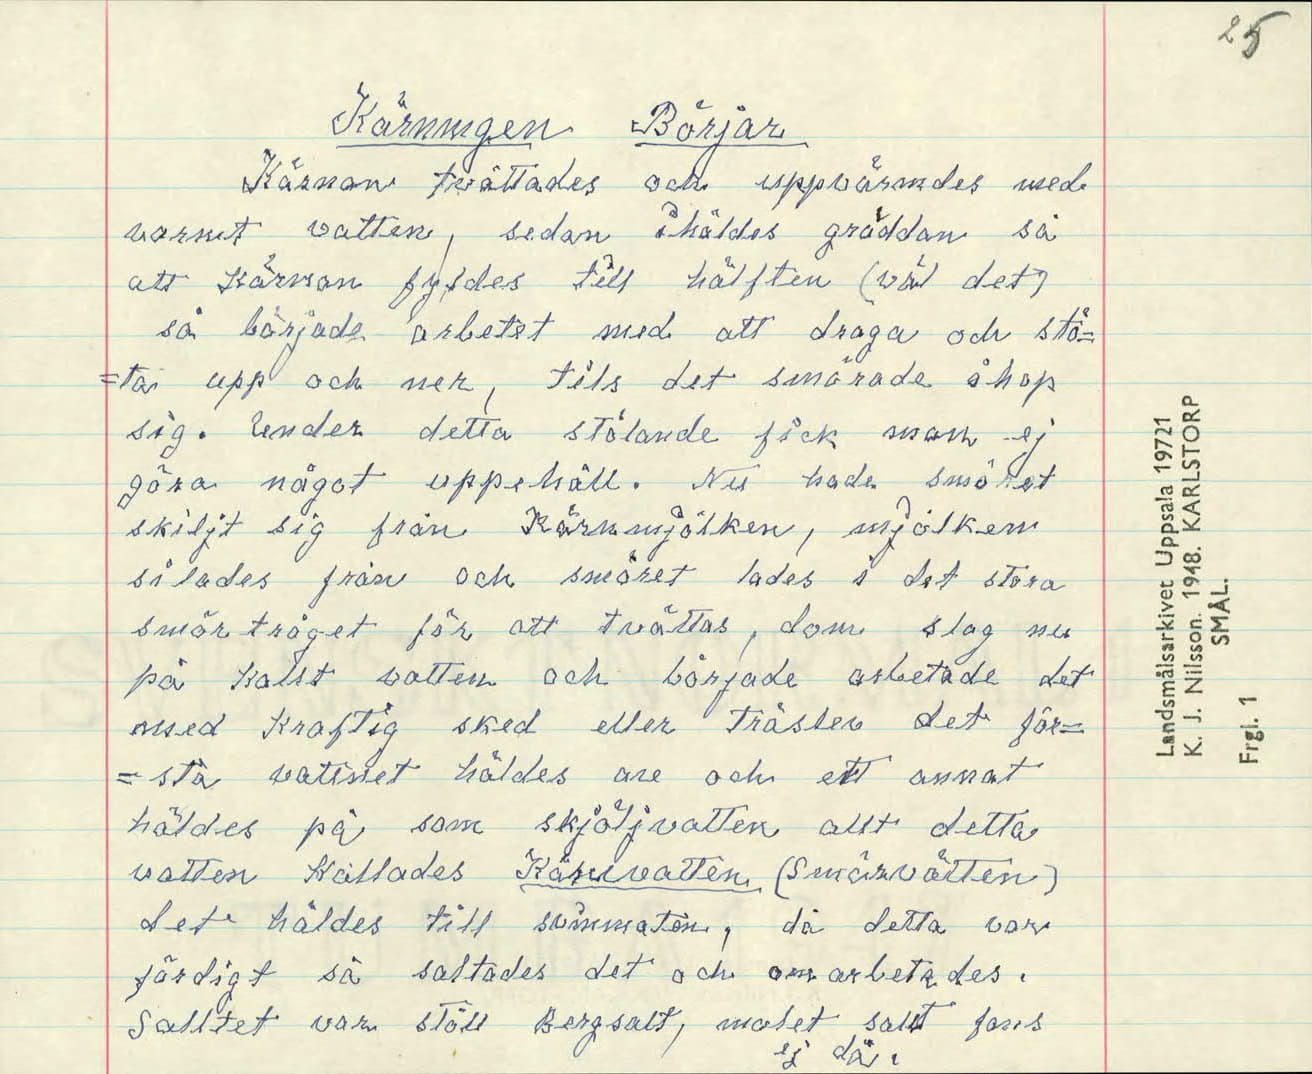 25
Kärningen Börjar
Kärnan tvättades och uppvärmdes med
varmt vatten, sedan ihäldes gräddan så
att Kärnan fyldes till hälften (väl det)
så började arbetet med att draga och stö=
=ta upp och ner, tils det smörade ihop
sig. Under detta stölande fick man ej
göra något uppehåll. Nu hade smöret
skiljt sig från Kärnmjölken, mjölken
silades från och smöret lades i det stora
smörtråget för att tvättas, dom slog nu
på kallt vatten och började arbetade det
med kraftig sked eller träslev det för=
=sta vattnet häldes av och ett annat
häldes på som skjöljvatten allt detta
vatten kallades Kärnvatten (Smörvätten)
det häldes till svinmaten, då detta var
färdigt så saltades det och omarbetades.
Salltet var stött Bergsalt, malet salt fans
ej då.
Landsmålsarkivet Uppsala 19721
K. J. Nilsson. 1948. KARLSTORP
SMÅL.
Frgl. 1